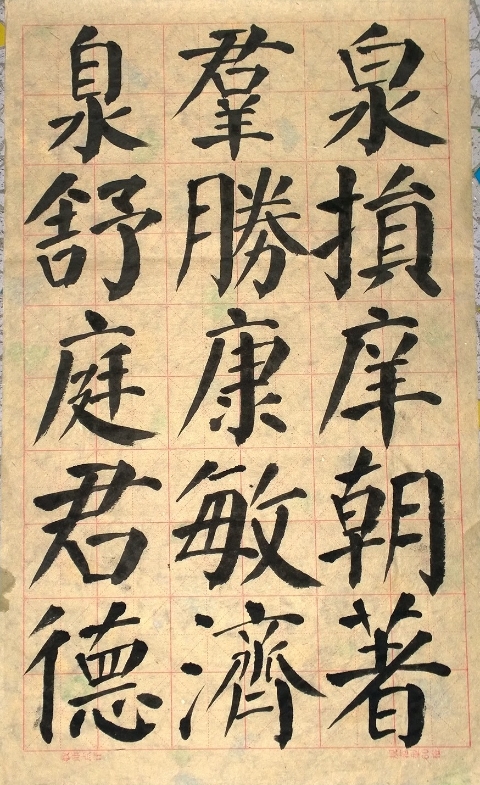 泉損庠朝著
羣勝康敏濟
泉舒庭君德